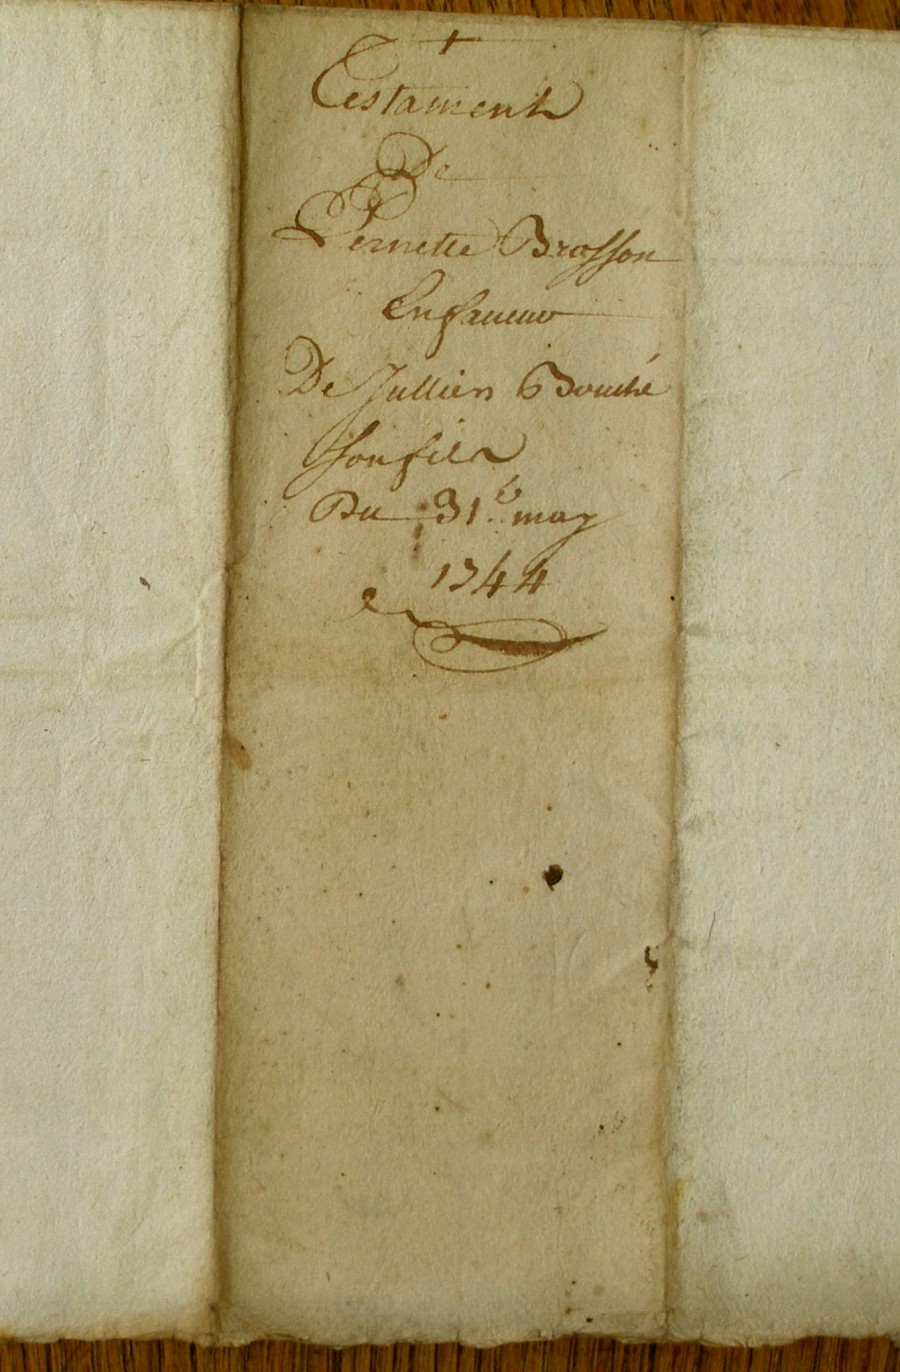 +
Testament
De
Pernette Brosson
En faveur
De Jullien Bouché
son fils
Du 31e may
1744